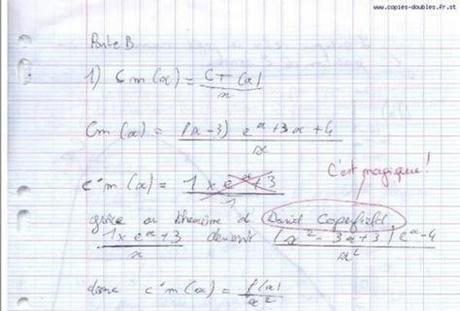 www.copies-doubles.fr.st
Partie B
1) Cm(x) = CT(x)/x
Cm(x) = ((x-3) e^x + 3x + 4)/x
C'est magique!
c'm(x) = (1 x e^x + 3)/1
grâce au théorème d David Coperfield
(1 x e^x + 3)/x devient ((x² - 3x + 3) e^x - 4)/x²
donc c'm(x) = f(x)/x²